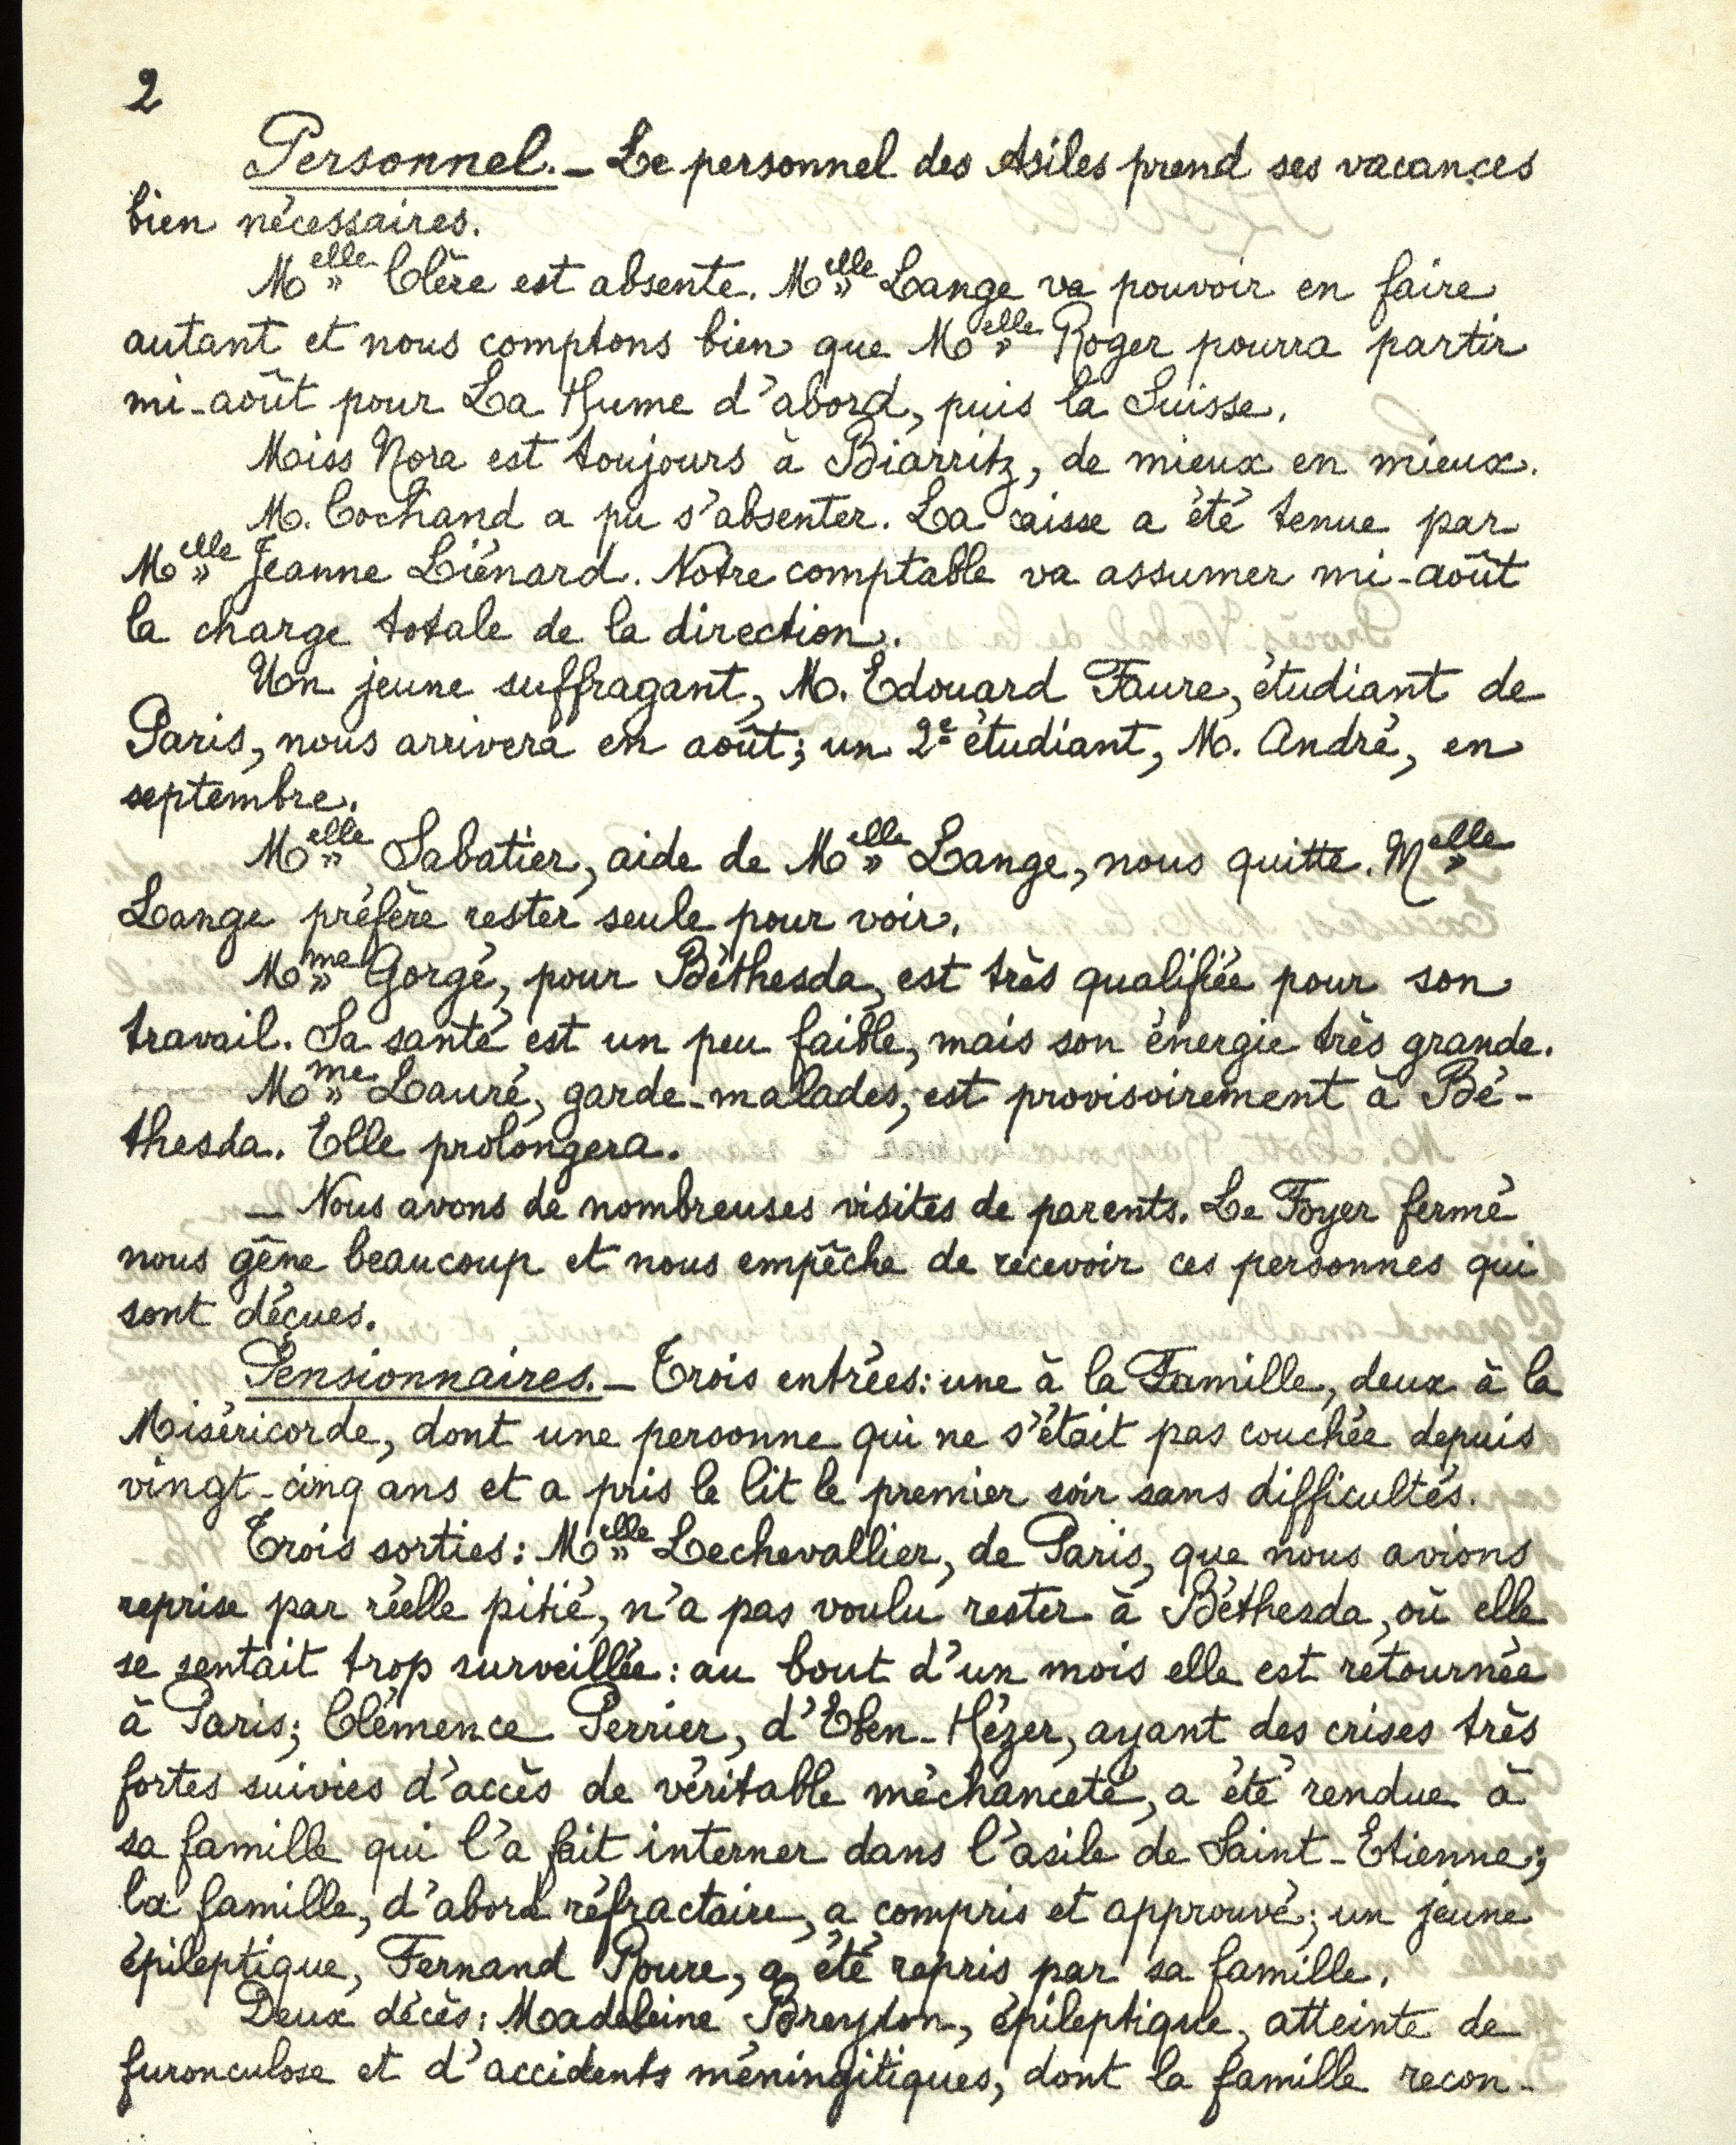 2
Personnel. – Le personnel des Asiles prend ses vacances
bien nécessaires.
Melle Clère est absente. Melle Lange va pouvoir en faire
autant et nous comptons bien que Melle Roger pourra partir
mi-août pour La Hume d'abord, puis la Suisse.
Miss Nora est toujours à Biarritz, de mieux en mieux.
M. Cochand a pu s'absenter. La caisse a été tenue par
Melle Jeanne Liénard. Notre comptable va assumer mi-août
la charge totale de la direction.
Un jeune suffragant, M. Edouard Faure, étudiant de
Paris, nous arrivera en août; un 2e étudiant, M. André, en
septembre.
Melle Sabatier, aide de Melle Lange, nous quitte. Melle
Lange préfère rester seule pour voir.
Mme Gorgé, pour Béthesda, est très qualifiée pour son
travail. Sa santé est un peu faible, mais son énergie très grande.
Mme Lauré, garde-malades, est provisoirement à Bé-
thesda. Elle prolongera.
– Nous avons de nombreuses visites de parents. Le Foyer fermé
nous gêne beaucoup et nous empêche de recevoir ces personnes qui
sont déçues.
Pensionnaires. – Trois entrées: une à la Famille, deux à la
Miséricorde, dont une personne qui ne s'était pas couchée depuis
vingt-cinq ans et a pris le lit le premier soir sans difficultés.
Trois sorties: Melle Lechevallier, de Paris, que nous avions
reprise par réelle pitié, n'a pas voulu rester à Béthesda, où elle
se sentait trop surveillée: au bout d'un mois elle est retournée
à Paris; Clémence Perrier, d'Eben-Hézer, ayant des crises très
fortes suivies d'accès de véritable méchanceté, a été rendue à
sa famille qui l'a fait interner dans l'asile de Saint-Etienne;
la famille, d'abord réfractaire, a compris et approuvé; un jeune
épileptique, Fernand Roure, a été repris par sa famille.
Deux décès: Madeleine Breyton, épileptique, atteinte de
furonculose et d'accidents méningitiques, dont la famille recon-